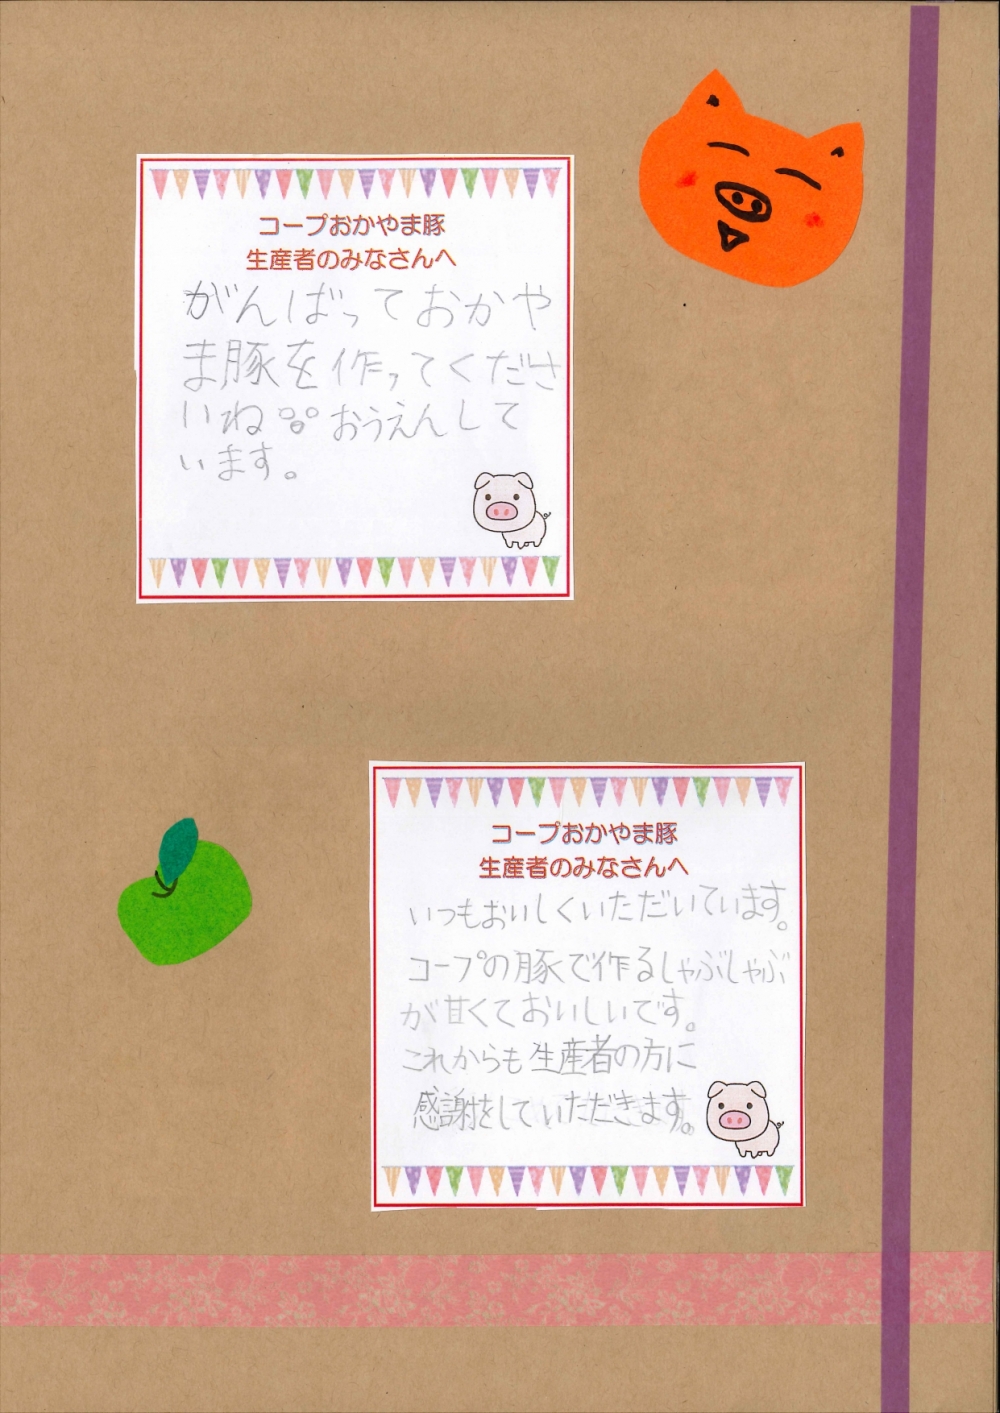 コープおかやま豚
生産者のみなさんへ
がんばっておかや
ま豚を作ってくださ
いね おうえんして
います。
コープおかやま豚
生産者のみなさんへ
いつもおいしくいただいています。
コープの豚で作るしゃぶしゃぶ
が甘くておいしいです。
これからも生産者の方に
感謝をしていただきます。